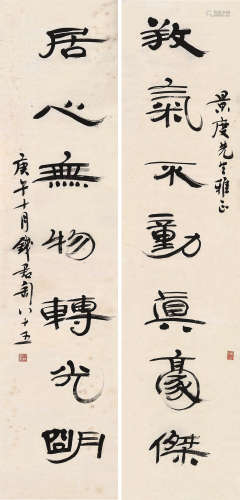 景度先生雅正
䍩氣不動眞豪傑
居心無物轉光朙
庚午十月錢君匋八十五